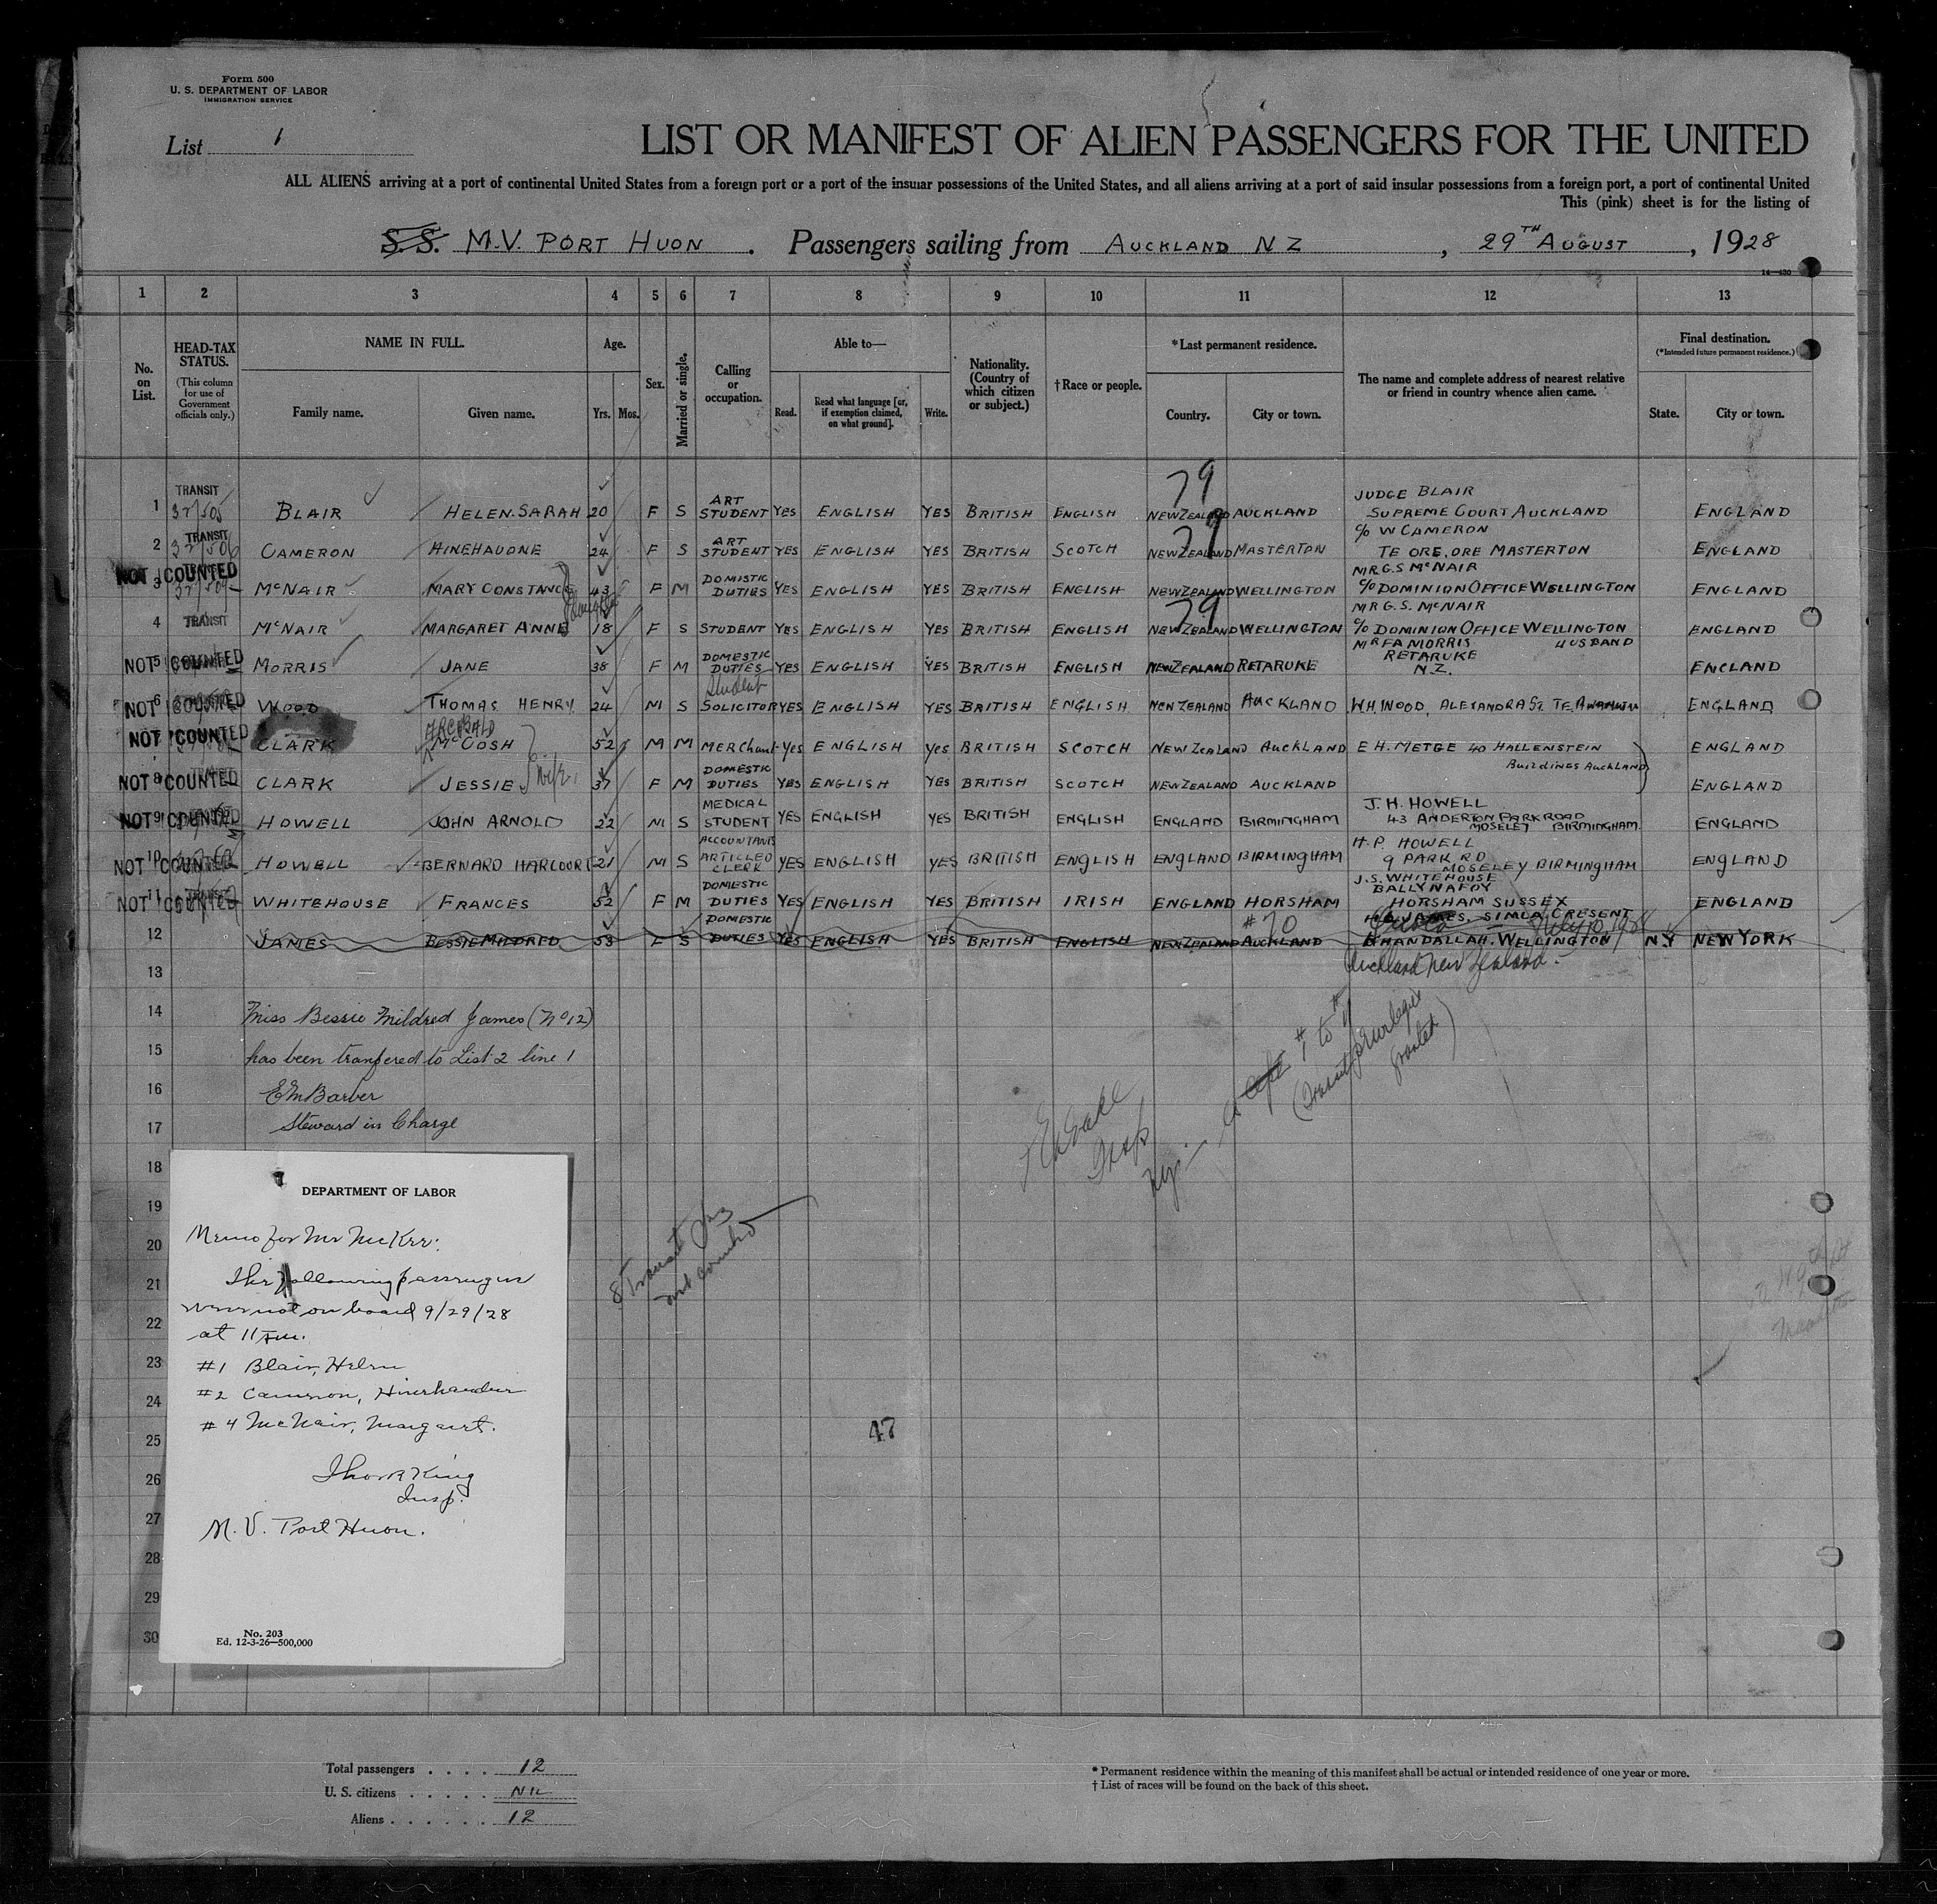 Form 500
U. S. DEPARTMENT OF LABOR
IMMIGRATION SERVICE
List 1
LIST OR MANIFEST OF ALIEN PASSENGERS FOR THE UNITED
ALL ALIENS arriving at a port of continental United States from a foreign port or a port of the insular possessions of the United States, and all aliens arriving at a port of said insular possessions from a foreign port, a port of continental United
This (pink) sheet is for the listing of
S.S. M.V. PORT HUON. Passengers sailing from AUCKLAND N Z, 29TH AUGUST, 1928
14—430
1 2 3 4 5 6 7 8 9 10 11 12 13
No. on List.
HEAD-TAX STATUS.
(This column for use of Government officials only.)
NAME IN FULL.
Family name. Given name.
Age.
Yrs. Mos.
Sex.
Married or single.
Calling or occupation.
Able to—
Read. Read what language [or, if exemption claimed, on what ground]. Write.
Nationality. (Country of which citizen or subject.)
†Race or people.
*Last permanent residence.
Country. City or town.
The name and complete address of nearest relative or friend in country whence alien came.
Final destination.
(*Intended future permanent residence.)
State. City or town.
1 TRANSIT BLAIR HELEN SARAH 20 F S ART STUDENT YES ENGLISH YES BRITISH ENGLISH NEW ZEALAND AUCKLAND JUDGE BLAIR SUPREME COURT AUCKLAND ENGLAND
79
2 TRANSIT CAMERON HINEHAUONE 24 F S ART STUDENT YES ENGLISH YES BRITISH SCOTCH NEW ZEALAND MASTERTON C/o W CAMERON TE ORE. ORE MASTERTON ENGLAND
79
3 NOT COUNTED McNAIR MARY CONSTANCE 43 F M DOMISTIC DUTIES YES ENGLISH YES BRITISH ENGLISH NEW ZEALAND WELLINGTON MR G.S McNAIR C/o DOMINION OFFICE WELLINGTON ENGLAND
4 TRANSIT McNAIR MARGARET ANNE daughter 18 F S STUDENT YES ENGLISH YES BRITISH ENGLISH NEW ZEALAND WELLINGTON MR G.S. McNAIR C/o DOMINION OFFICE WELLINGTON ENGLAND
79
5 NOT COUNTED MORRIS JANE 38 F M DOMESTIC DUTIES YES ENGLISH YES BRITISH ENGLISH NEW ZEALAND RETARUKE MR FA MORRIS HUSBAND RETARUKE N.Z. ENGLAND
6 NOT COUNTED WOOD THOMAS HENRY 24 M S Student SOLICITOR YES ENGLISH YES BRITISH ENGLISH NEW ZEALAND AUCKLAND W.H. WOOD, ALEXANDRA ST. TE AWAMUTU ENGLAND
NOT COUNTED CLARK McCOSH 52 M M MERChant Yes ENGLISH Yes BRITISH SCOTCH NEW ZEALAND AUCKLAND E H. METGE 40 HALLENSTEIN BUILDINGS AUCKLAND ENGLAND
8 NOT COUNTED CLARK JESSIE wife 37 F M DOMESTIC DUTIES YES ENGLISH YES BRITISH SCOTCH NEW ZEALAND AUCKLAND ENGLAND
9 NOT COUNTED HOWELL JOHN ARNOLD 22 M S MEDICAL STUDENT YES ENGLISH YES BRITISH ENGLISH ENGLAND BIRMINGHAM J.H. HOWELL 43 ANDERTON PARK ROAD MOSELEY BIRMINGHAM. ENGLAND
10 NOT COUNTED HOWELL BERNARD HARCOURT 21 M S ACCOUNTANTS ARTICLED CLERK YES ENGLISH YES BRITISH ENGLISH ENGLAND BIRMINGHAM H.P. HOWELL 9 PARK RD MOSELEY BIRMINGHAM ENGLAND
11 NOT COUNTED WHITEHOUSE FRANCES 52 F M DOMESTIC DUTIES YES ENGLISH YES BRITISH IRISH ENGLAND HORSHAM J.S. WHITEHOUSE BALLYNAFOY HORSHAM SUSSEX ENGLAND
12 JAMES BESSIE MILDRED 53 F S DOMESTIC DUTIES YES ENGLISH YES BRITISH ENGLISH NEW ZEALAND AUCKLAND JAMES, SIMLA CRESENT KHANDALLAH. WELLINGTON N.Y NEW YORK
#70
Auckland New Zealand.
13
14 Miss Bessie Mildred James (No 12)
15 has been transfered to List 2 line 1
16 E M Barber
17 Steward in Charge
#1 to #11
(Transit privileges granted)
Insp
18
19
20
21
22
23
24
25
26
27
28
29
30
8 Transit
not counted
47
DEPARTMENT OF LABOR
Memo for Mr McKee:
The following passengers
were not on board 9/29/28
at 11 am.
#1 Blair, Helen
#2 Cameron,
#4 McNair, Margaret.
Thos R King
Insp.
M. V. Port Huon.
No. 203
Ed. 12-3-26—500,000
Total passengers . . . . 12
U. S. citizens . . . . . NIL
Aliens . . . . . . 12
* Permanent residence within the meaning of this manifest shall be actual or intended residence of one year or more.
† List of races will be found on the back of this sheet.